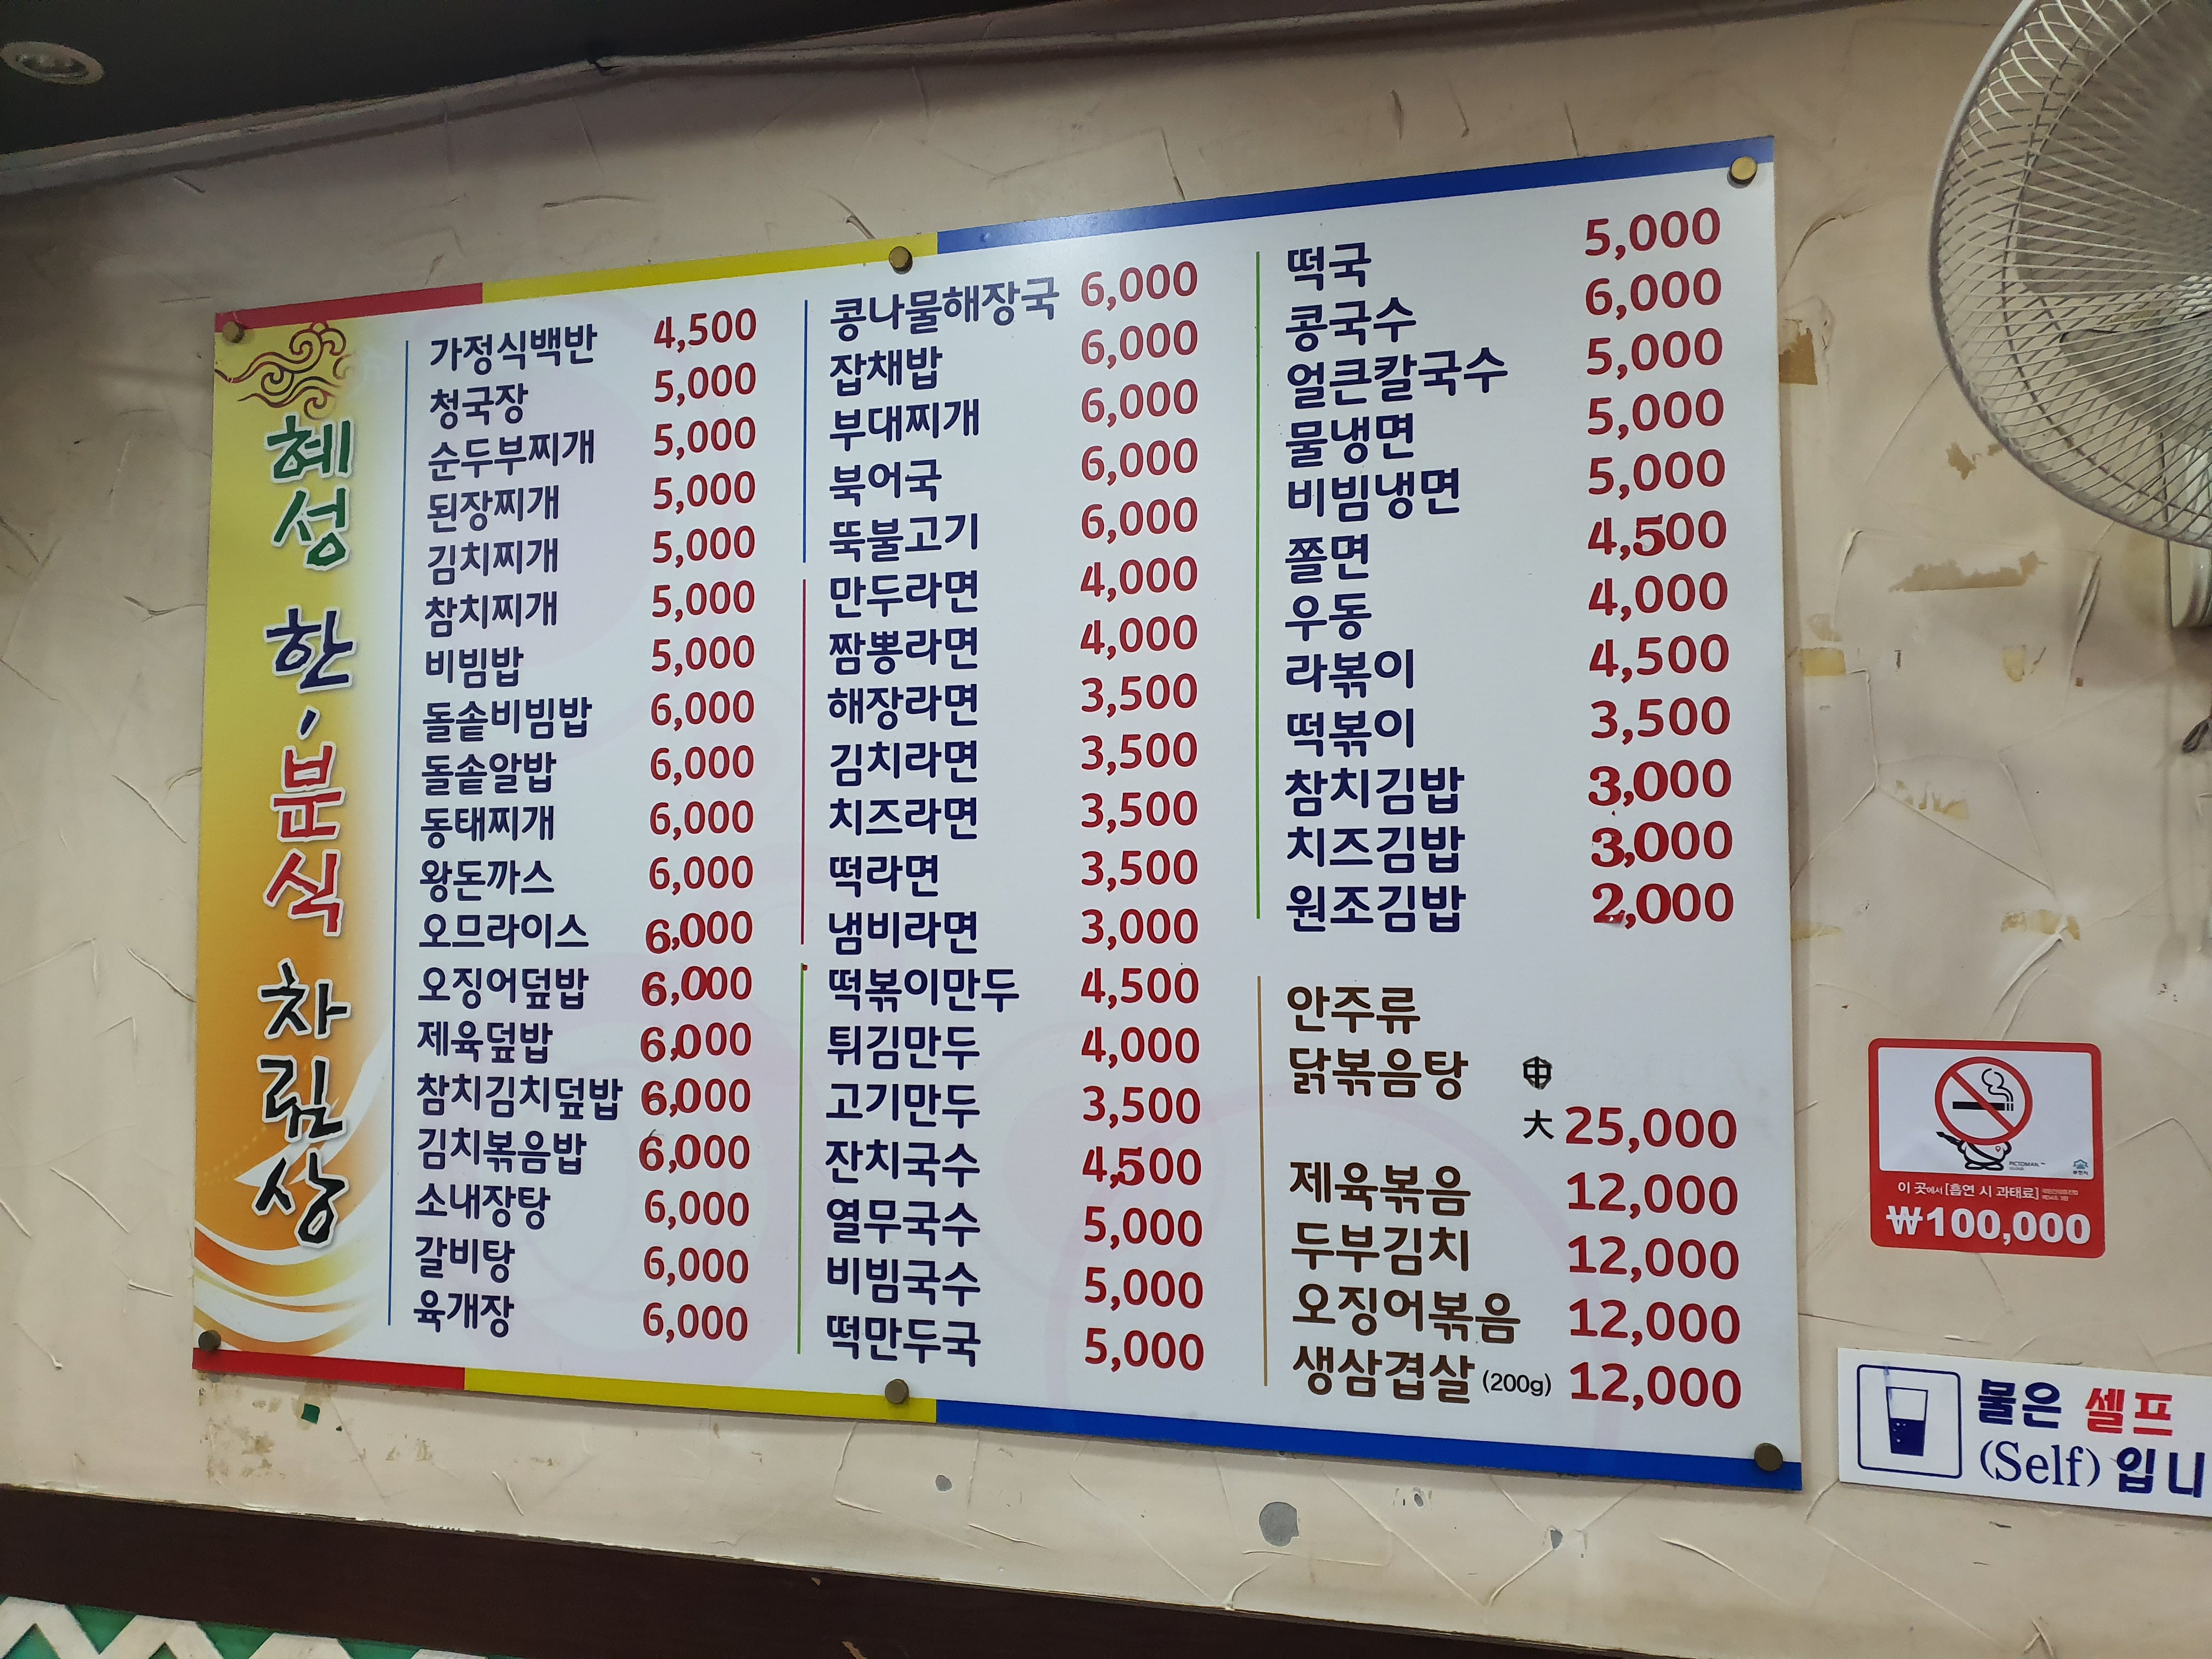 혜성 한·분식 차림상
가정식백반 4,500
청국장 5,000
순두부찌개 5,000
된장찌개 5,000
김치찌개 5,000
참치찌개 5,000
비빔밥 5,000
돌솥비빔밥 6,000
돌솥알밥 6,000
동태찌개 6,000
왕돈까스 6,000
오므라이스 6,000
오징어덮밥 6,000
제육덮밥 6,000
참치김치덮밥 6,000
김치볶음밥 6,000
소내장탕 6,000
갈비탕 6,000
육개장 6,000
콩나물해장국 6,000
잡채밥 6,000
부대찌개 6,000
북어국 6,000
뚝불고기 6,000
만두라면 4,000
짬뽕라면 4,000
해장라면 3,500
김치라면 3,500
치즈라면 3,500
떡라면 3,500
냄비라면 3,000
떡볶이만두 4,500
튀김만두 4,000
고기만두 3,500
잔치국수 4,500
열무국수 5,000
비빔국수 5,000
떡만두국 5,000
떡국 5,000
콩국수 6,000
얼큰칼국수 5,000
물냉면 5,000
비빔냉면 5,000
쫄면 4,500
우동 4,000
라볶이 4,500
떡볶이 3,500
참치김밥 3,000
치즈김밥 3,000
원조김밥 2,000
안주류
닭볶음탕 中
大 25,000
제육볶음 12,000
두부김치 12,000
오징어볶음 12,000
생삼겹살 (200g) 12,000
PICTOMAN
이 곳에서 [흡연 시 과태료]
₩100,000
물은 셀프
(Self) 입니